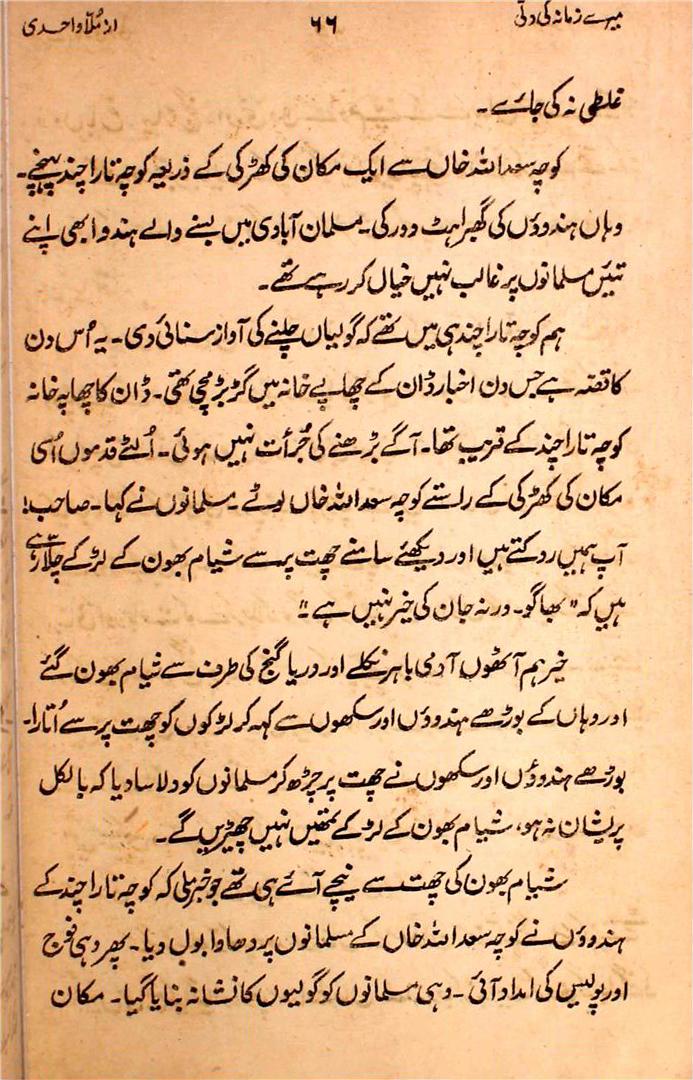 میرے زمانہ کی دلّی ۶۶ از مُلّا واحدی
غلطی نہ کی جائے۔
کوچہ سعد اللہ خاں سے ایک مکان کی کھڑکی کے ذریعہ کوچہ تارا چند پہنچے۔
وہاں ہندوؤں کی گھبراہٹ دور کی۔ مسلمان آبادی میں بسنے والے ہندو ابھی اپنے
تئیں مسلمانوں پر غالب نہیں خیال کر رہے تھے۔
ہم کوچہ تارا چند ہی میں تھے کہ گولیاں چلنے کی آواز سنائی دی۔ یہ اُس دن
کا قصّہ ہے جس دن اخبار ڈان کے چھاپے خانہ میں گڑبڑ مچی تھی۔ ڈان کا چھاپہ خانہ
کوچہ تارا چند کے قریب تھا۔ آگے بڑھنے کی جُرأت نہیں ہوئی۔ اُلٹے قدموں اُسی
مکان کی کھڑکی کے راستے کوچہ سعد اللہ خاں لوٹے۔ مسلمانوں نے کہا۔ صاحب!
آپ ہمیں روکتے ہیں اور دیکھئے سامنے چھت پر سے شیام بھون کے لڑکے چلّا رہے
ہیں کہ "بھاگو۔ ورنہ جان کی خیر نہیں ہے"۔
خیر ہم آٹھوں آدمی باہر نکلے اور دریا گنج کی طرف سے شیام بھون گئے
اور وہاں کے بوڑھے ہندوؤں اور سکھوں سے کہہ کر لڑکوں کو چھت پر سے اُتارا۔
بوڑھے ہندوؤں اور سکھوں نے چھت پر چڑھ کر مسلمانوں کو دلاسا دیا کہ بالکل
پریشان نہ ہو، شیام بھون کے لڑکے تمھیں نہیں چھیڑیں گے۔
شیام بھون کی چھت سے نیچے آئے ہی تھے جو خبر ملی کہ کوچہ تارا چند کے
ہندوؤں نے کوچہ سعد اللہ خاں کے مسلمانوں پر دھاوا بول دیا۔ پھر وہی فوج
اور پولیس کی امداد آئی۔ وہی مسلمانوں کو گولیوں کا نشانہ بنایا گیا۔ مکان